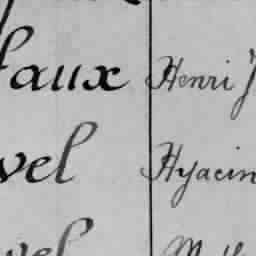 faux Henri J
vel Hyacin
vel M